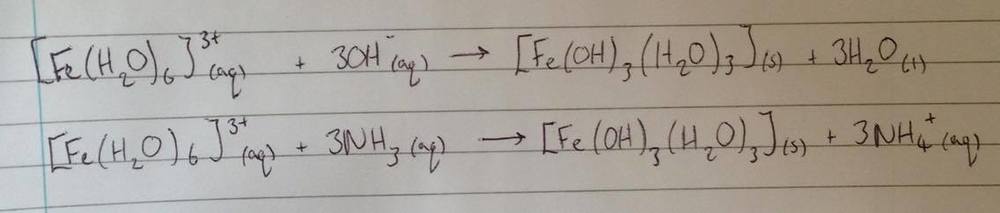 [Fe(H₂O)₆]³⁺(aq) + 3OH⁻(aq) → [Fe(OH)₃(H₂O)₃](s) + 3H₂O(l)
[Fe(H₂O)₆]³⁺(aq) + 3NH₃(aq) → [Fe(OH)₃(H₂O)₃](s) + 3NH₄⁺(aq)